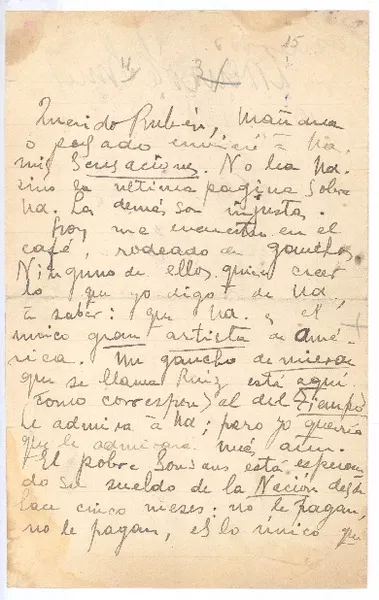 15
4 3
Querido Rubén, mañana
o pasado enviaré à Ud.
mis Sensaciones. No lea Ud.
sino la ultima pagina sobre
Ud. Las demás son injustas.
Hoy me encuentro en el
café, rodeado de gauchos
Ninguno de ellos quiere creer
lo que yo digo de Ud,
à saber: que Ud. es el
unico gran artista de Amé-
rica. Un gaucho de
que se llama Ruiz está aquí
como corresponsal del Tiempo
Le admira à Ud; pero yo querría
que le admirara más aun.
El pobre está esperan
do su sueldo de la Nación desde
hace cinco meses: no le pagan,
no le pagan, es lo único que